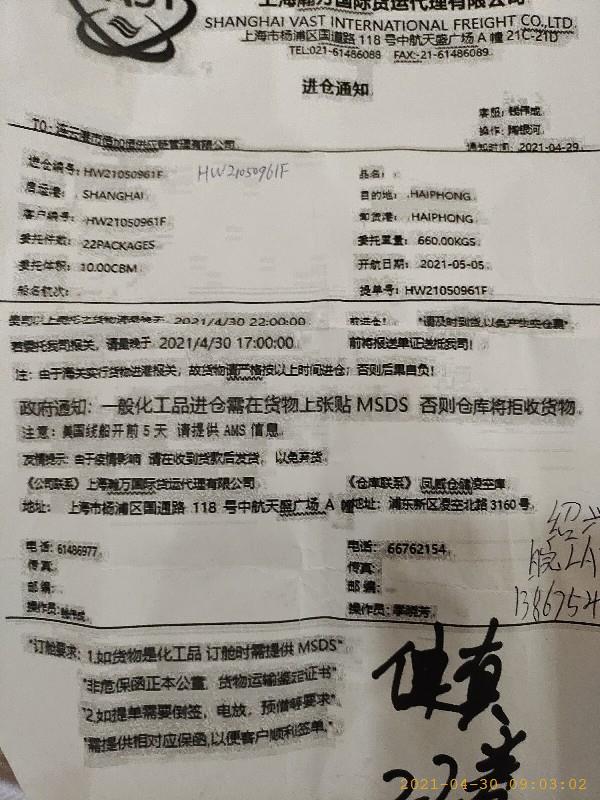 上海瀚万国际货运代理有限公司
SHANGHAI VAST INTERNATIONAL FREIGHT CO.,LTD.
上海市杨浦区国通路 118 号中航天盛广场 A 幢 21C-21D
TEL:021-61486088 FAX:-21-61486089
进仓通知
客服：钱伟成
操作：陶银河
TO：
有限公司
通知时间：2021-04-29
进仓编号：HW21050961F HW21050961F 品名：
启运港：SHANGHAI 目的地：HAIPHONG
客户编号：HW21050961F 卸货港：HAIPHONG
委托件数：22PACKAGES 委托重量：660.00KGS
委托体积：10.00CBM 开航日期：2021-05-05
船名航次： 提单号：HW21050961F
2021/4/30 22:00:00 前进仓！ *请及时到货,以免产生空仓费*
若委托我司报关，请最晚于 2021/4/30 17:00:00 前将报送单证送抵我司！
注：由于海关实行货物进港报关，故货物请严格按以上时间进仓；否则后果自负！
政府通知：一般化工品进仓需在货物上张贴 MSDS 否则仓库将拒收货物
注意：美国线船开前 5 天 请提供 AMS 信息
友情提示：由于疫情影响 请在收到货款后发货，以免弃货
《公司联系》上海瀚万国际货运代理有限公司 《仓库联系》凤威仓储凌空库
地址： 上海市杨浦区国通路 118 号中航天盛广场 A 幢 地址：浦东新区凌空北路 3160 号
绍兴
电话：61486977 电话：66762154
传真： 传真：
1386754
邮编： 邮编：
操作员：钱伟成 操作员：季晓芳
"订舱要求：1.如货物是化工品 订舱时需提供 MSDS"
"非危保函正本公章，货物运输鉴定证书"
"2.如提单需要倒签，电放，预借等要求"
"需提供相对应保函,以便客户顺利签单."
22
2021-04-30 09:03:02